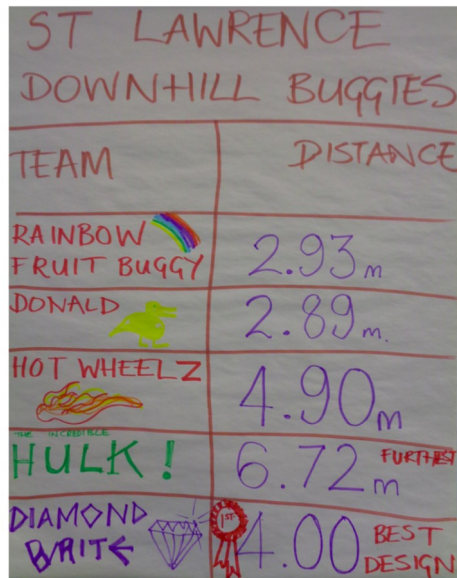 ST LAWRENCE
DOWNHILL BUGGIES
TEAM DISTANCE
RAINBOW
FRUIT BUGGY 2.93m
DONALD 2.89m.
HOT WHEELZ 4.90m
THE INCREDIBLE
HULK! 6.72m FURTHEST
DIAMOND
BRITE 1ST 4.00 BEST
DESIGN